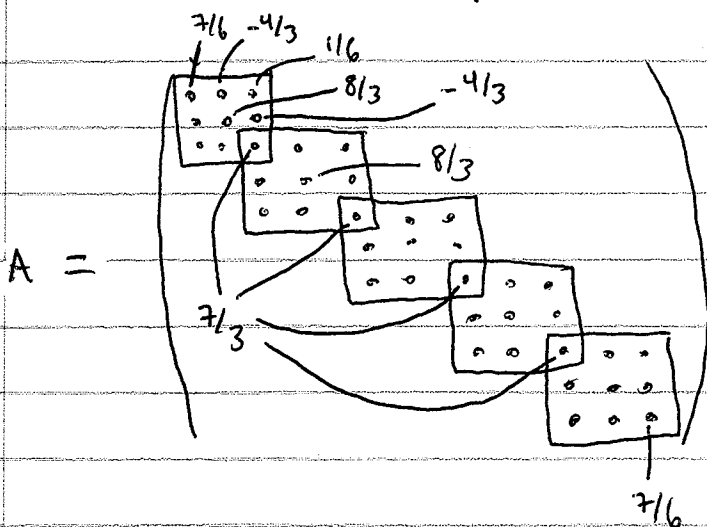 7/6 -4/3 1/6
8/3 -4/3
8/3
A =
7/3
7/6